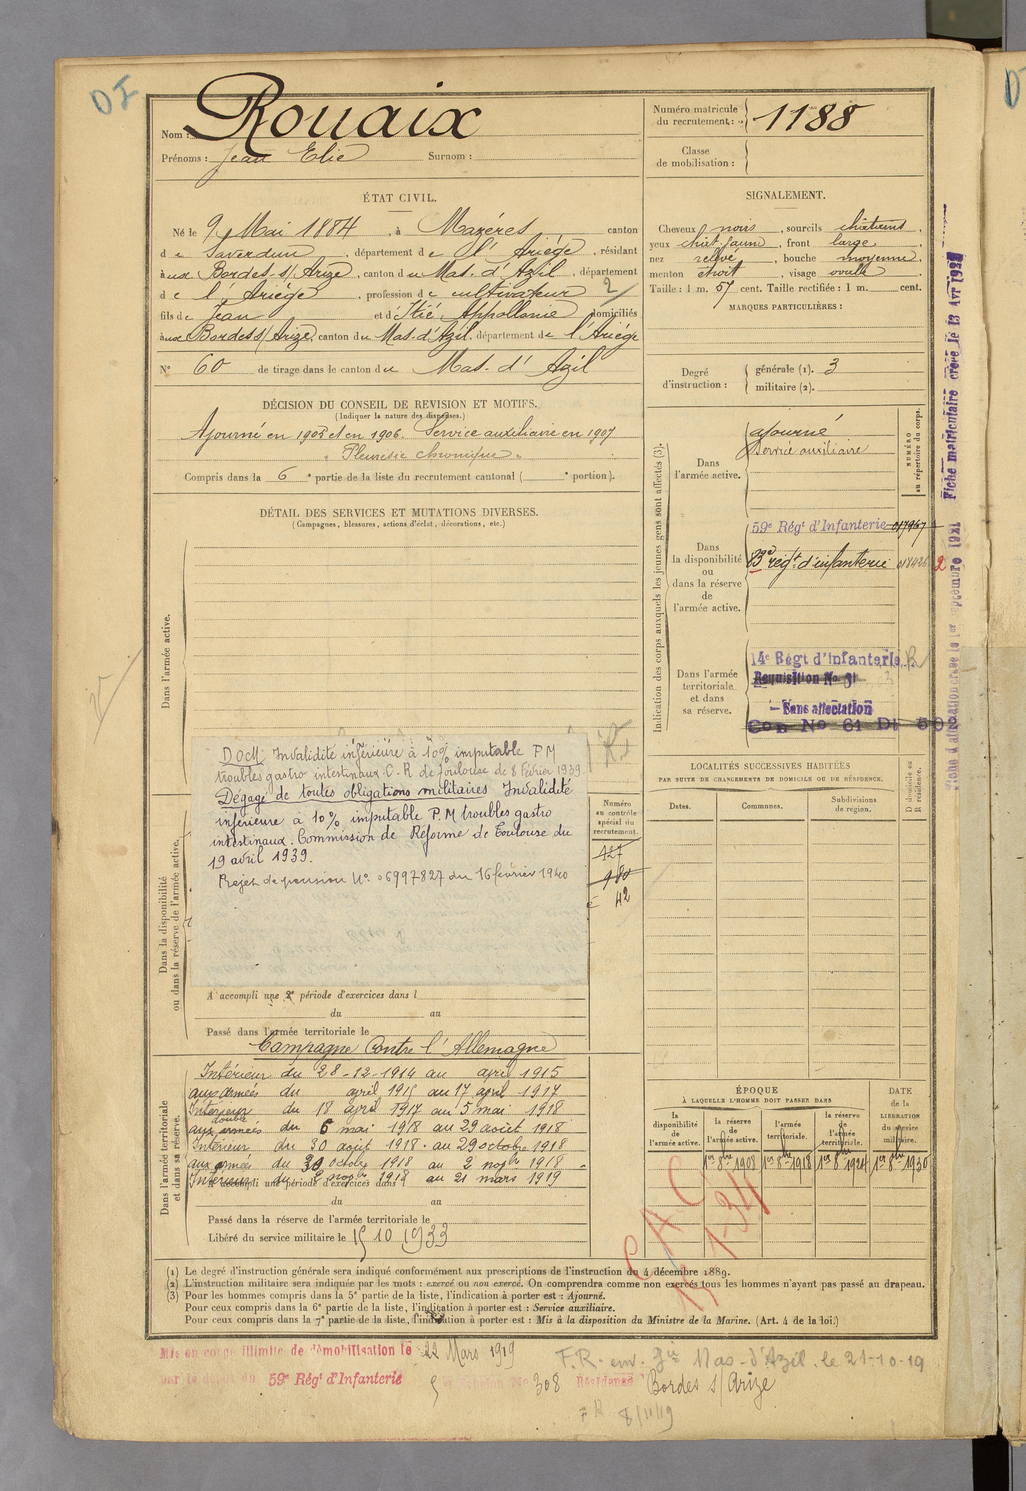 DI
Nom : Rouaix
Prénoms : Jean Elie Surnom :
Numéro matricule
du recrutement : 1188
Classe
de mobilisation :
ÉTAT CIVIL.
Né le 9 Mai 1884, à Mazéres canton
de Saverdun, département de l'Ariége, résidant
aux Bordes-s/Arize, canton du Mas-d'Azil, département
de l'Ariége, profession de cultivateur 2/
fils de Jean et d'Itié Appollonie domiciliés
aux Bordes s/Arize, canton du Mas-d'Azil, département de l'Ariége
N° 60 de tirage dans le canton du Mas-d'Azil
SIGNALEMENT.
Cheveux noirs, sourcils châtains,
yeux chât. jaune, front large,
nez relevé, bouche moyenne,
menton étroit, visage ovale
Taille : 1 m. 57 cent. Taille rectifiée : 1 m. cent.
MARQUES PARTICULIÈRES :
Degré
d'instruction :
générale (1). 3
militaire (2).
DÉCISION DU CONSEIL DE REVISION ET MOTIFS.
(Indiquer la nature des dispenses.)
Ajourné en 1905 et en 1906. Service auxiliaire en 1907
" Pleurésie chronique "
Compris dans la 6e partie de la liste du recrutement cantonal ( e portion).
DÉTAIL DES SERVICES ET MUTATIONS DIVERSES.
(Campagnes, blessures, actions d'éclat, décorations, etc.)
Dans l'armée active.
Indication des corps auxquels les jeunes gens sont affectés (3).
NUMÉRO
au répertoire du corps.
Dans
l'armée active.
ajourné
Service auxiliaire
Dans
la disponibilité
ou
dans la réserve
de
l'armée active.
59e Régt d'Infanterie 017967
83e régt d'infanterie 2
Dans l'armée
territoriale
et dans
sa réserve.
14e Régt d'Infanterie R
Requisition No 61
Sans affectation
Con No 61 Dt 502
Fiche matriculaire créée le 13 Avr 1928
Fiche d'affectation créée le 1er Septembre 1921
LOCALITÉS SUCCESSIVES HABITÉES
PAR SUITE DE CHANGEMENTS DE DOMICILE OU DE RÉSIDENCE.
Dates.
Communes.
Subdivisions
de région.
D domicile ou
R résidence.
D.O.C.M. Invalidité inférieure à 10% imputable P M
troubles gastro intestinaux C.R de Toulouse de 8 Février 1939.
Dégagé de toutes obligations militaires Invalidité
inférieure à 10% imputable P.M troubles gastro
intestinaux. Commission de Réforme de Toulouse du
19 avril 1939.
Rejet de pension N° 06997827 du 16 février 1940
Numéro
au contrôle
spécial du
recrutement.
127
180
42
Dans la disponibilité
ou dans la réserve de l'armée active.
A accompli une 2e période d'exercices dans l
du au
Passé dans l'armée territoriale le
Campagne Contre l'Allemagne
Dans l'armée territoriale
et dans sa réserve.
Intérieur du 28-12-1914 au avril 1915
aux armées du avril 1915 au 17 avril 1917
Intérieur du 18 avril 1917 au 5 mai 1918
double
aux armées du 6 mai 1918 au 29 août 1918
Intérieur du 30 août 1918 au 29 octobre 1918
aux armées du 30 octobre 1918 au 2 novbre 1918
Intérieur du novbre 1918 au 21 mars 1919
A accompli une période d'exercices dans l
du au
Passé dans la réserve de l'armée territoriale le
Libéré du service militaire le 15 10 1933
ÉPOQUE
À LAQUELLE L'HOMME DOIT PASSER DANS
la
disponibilité
de
l'armée active.
la réserve
de
l'armée active.
l'armée
territoriale.
la réserve
de
l'armée
territoriale.
DATE
de la
LIBÉRATION
du service
militaire.
1er 8bre 1908
1er 8bre 1918
1er 8bre 1924
1er 8bre 1930
CAC
15 1-34
(1) Le degré d'instruction générale sera indiqué conformément aux prescriptions de l'instruction du 4 décembre 1889.
(2) L'instruction militaire sera indiquée par les mots : exercé ou non exercé. On comprendra comme non exercés tous les hommes n'ayant pas passé au drapeau.
(3) Pour les hommes compris dans la 5e partie de la liste, l'indication à porter est : Ajourné.
Pour ceux compris dans la 6e partie de la liste, l'indication à porter est : Service auxiliaire.
Pour ceux compris dans la 7e partie de la liste, l'indication à porter est : Mis à la disposition du Ministre de la Marine. (Art. 4 de la loi.)
Mis en congé illimité de démobilisation le 22 Mars 1919
par le dépôt du 59e Régt d'Infanterie
5 échelon No 308 Résidence Bordes s/Arize
F.R. env. Gie Mas-d'Azil le 21-10-19
FR 8/11/19